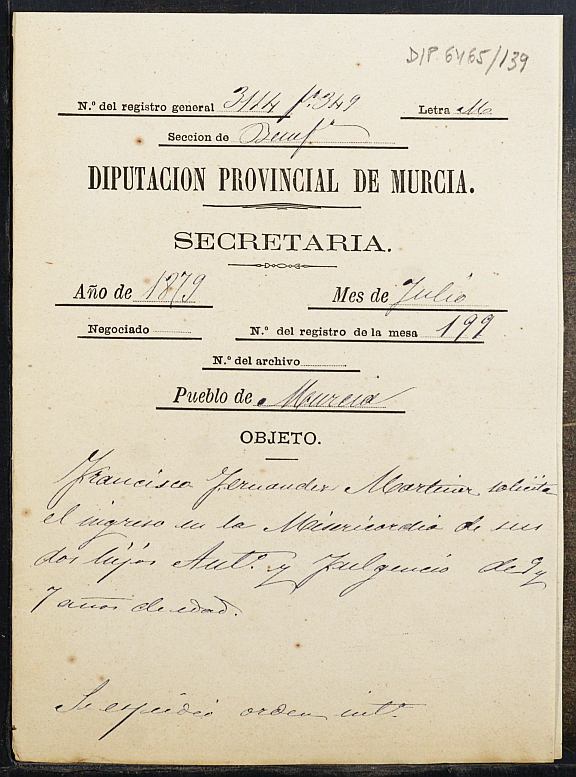 DIP. 6465/139
N.º del registro general 3114 fº 349 Letra M.
Seccion de Benefª
DIPUTACION PROVINCIAL DE MURCIA.
SECRETARIA.
Año de 1879 Mes de Julio
Negociado N.º del registro de la mesa 199
N.º del archivo
Pueblo de Murcia
OBJETO.
Francisca Fernandez Martinez solicita
el ingreso en la Misericordia de sus
dos hijos Antº y Fulgencio de 9 y
7 años de edad.
Se espidió orden intª